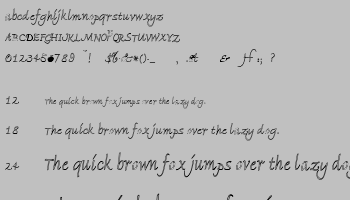 abcdefghijklmnopqrstuvwxyz
ABCDEFGHIJKLMNOPQRSTUVWXYZ
0123456789 ! $%&*().
12 The quick brown fox jumps over the lazy dog.
18 The quick brown fox jumps over the lazy dog.
24 The quick brown fox jumps over the lazy